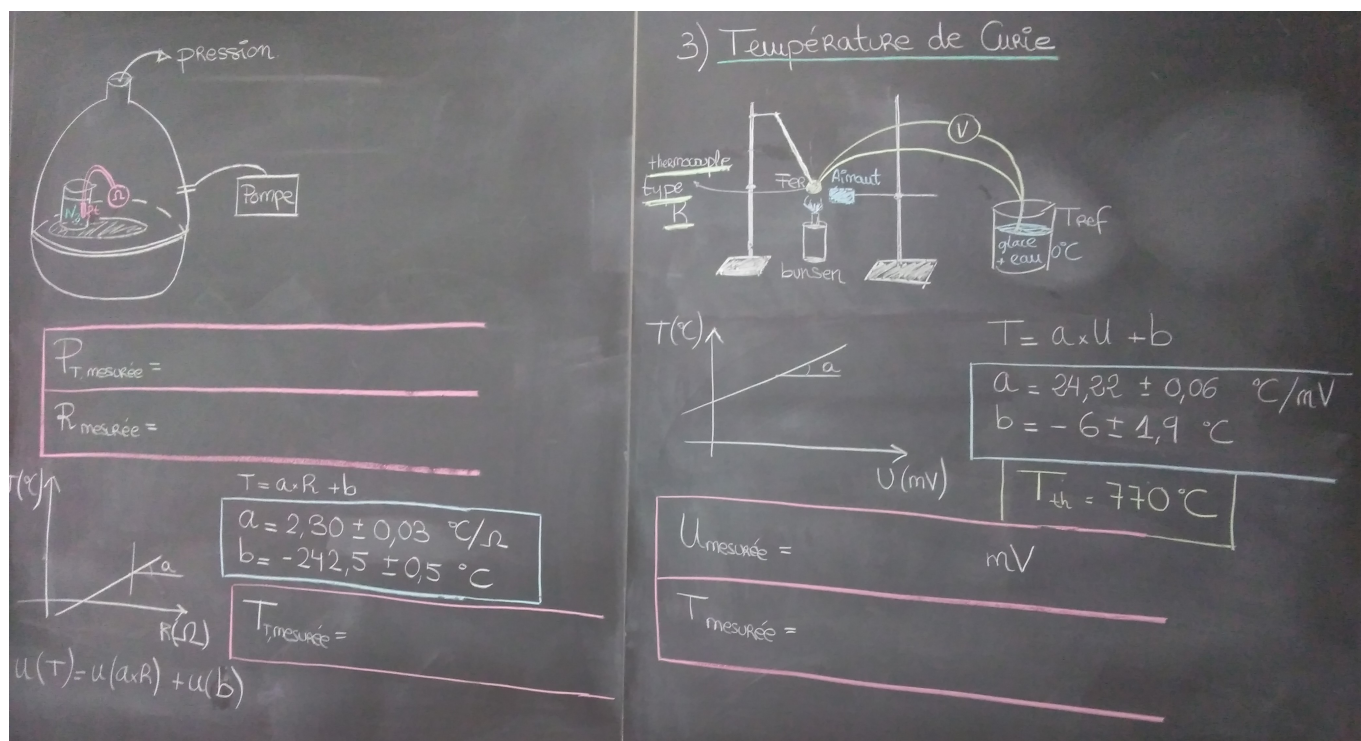 pression
Pompe
Ω
N₂
Pt
P T, mesurée =
R mesurée =
T(°C)
a
R(Ω)
T = a×R + b
a = 2,30 ± 0,03 °C/Ω
b = -242,5 ± 0,5 °C
T T, mesurée =
u(T) = u(a×R) + u(b)
3) Température de Curie
thermocouple
type
K
FER
Aimant
V
bunsen
Tref
0°C
glace
+ eau
T(°C)
a
U(mV)
T = a×U + b
a = 24,22 ± 0,06 °C/mV
b = - 6 ± 1,9 °C
T th = 770°C
U mesurée = mV
T mesurée =